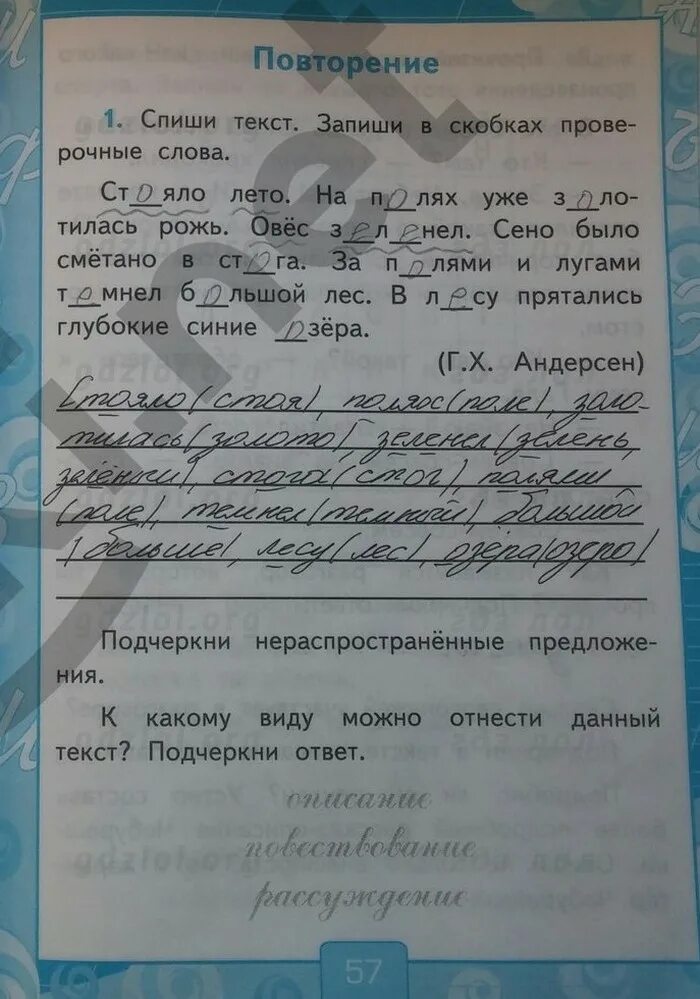 Повторение
1. Спиши текст. Запиши в скобках прове-
рочные слова.
Стояло лето. На полях уже золо-
тилась рожь. Овёс зеленел. Сено было
смётано в стога. За полями и лугами
темнел большой лес. В лесу прятались
глубокие синие озёра.
(Г.Х. Андерсен)
Стояло (стоя), полях (поле), золо-
тилась (золото), зеленел (зелень,
зелёный), стога (стог), полями
(поле), темнел (темный), большой
(больше), лесу (лес), озёра (озеро)
Подчеркни нераспространённые предложе-
ния.
К какому виду можно отнести данный
текст? Подчеркни ответ.
описание
повествование
рассуждение
57